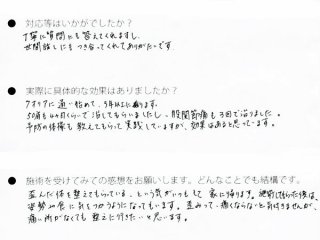 ● 対応等はいかがでしたか?
丁寧に質問にも答えてくれますし、
世間話しにもつき合ってくれてありがたいです
● 実際に具体的な効果はありましたか?
通い始めて、5年以上に
50肩も4ヶ月くらいで治してもらいましたし、股関節痛も3回で治りました。
予防の体操も教えてもらって実践していますが、効果はあると思っています。
● 施術を受けてみての感想をお願いします。どんなことでも結構です。
歪んだ体を整えてもらっている、という気がいつもして家に帰ります。施術してもらった後は、
姿勢や骨に気をつかうようになっています。歪みって、痛くならないと気付きませんが、
痛い所がなくても整えに行きたいと思います。